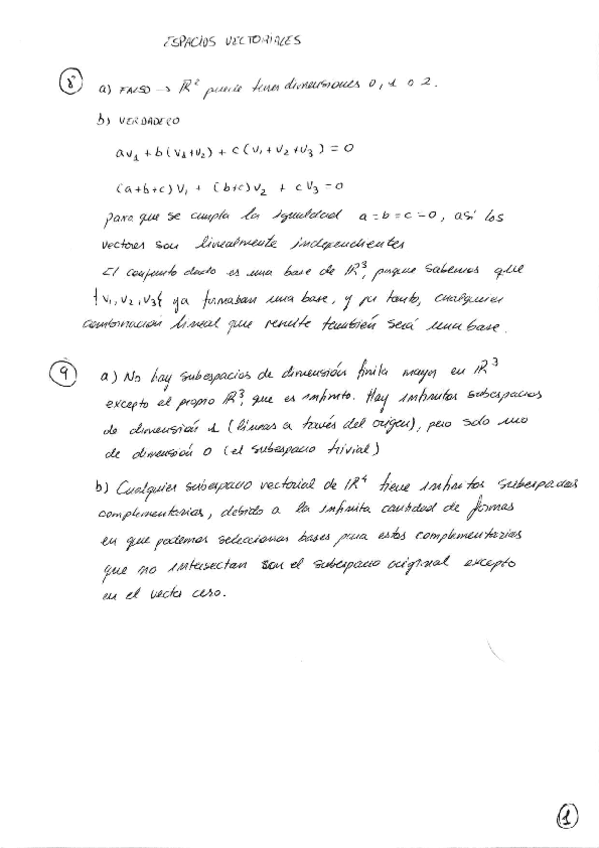 ESPACIOS VECTORIALES
8 a) FALSO → R² puede tener dimensiones 0, 1 o 2.
b) VERDADERO
av₁ + b(v₁+v₂) + c(v₁+v₂+v₃) = 0
(a+b+c)v₁ + (b+c)v₂ + cv₃ = 0
para que se cumpla la igualdad a=b=c=0, así los
vectores son linealmente independientes
El conjunto dado es una base de R³, porque sabemos que
{v₁, v₂, v₃} ya formaban una base, y por tanto, cualquier
combinación lineal que resulte también será una base.
9 a) No hay subespacios de dimensión finita mayor en R³
excepto el propio R³, que es infinito. Hay infinitos subespacios
de dimensión 1 (líneas a través del origen), pero solo uno
de dimensión 0 (el subespacio trivial)
b) Cualquier subespacio vectorial de R⁴ tiene infinitos subespacios
complementarios, debido a la infinita cantidad de formas
en que podemos seleccionar bases para estos complementarios
que no intersectan con el subespacio original excepto
en el vector cero.
1